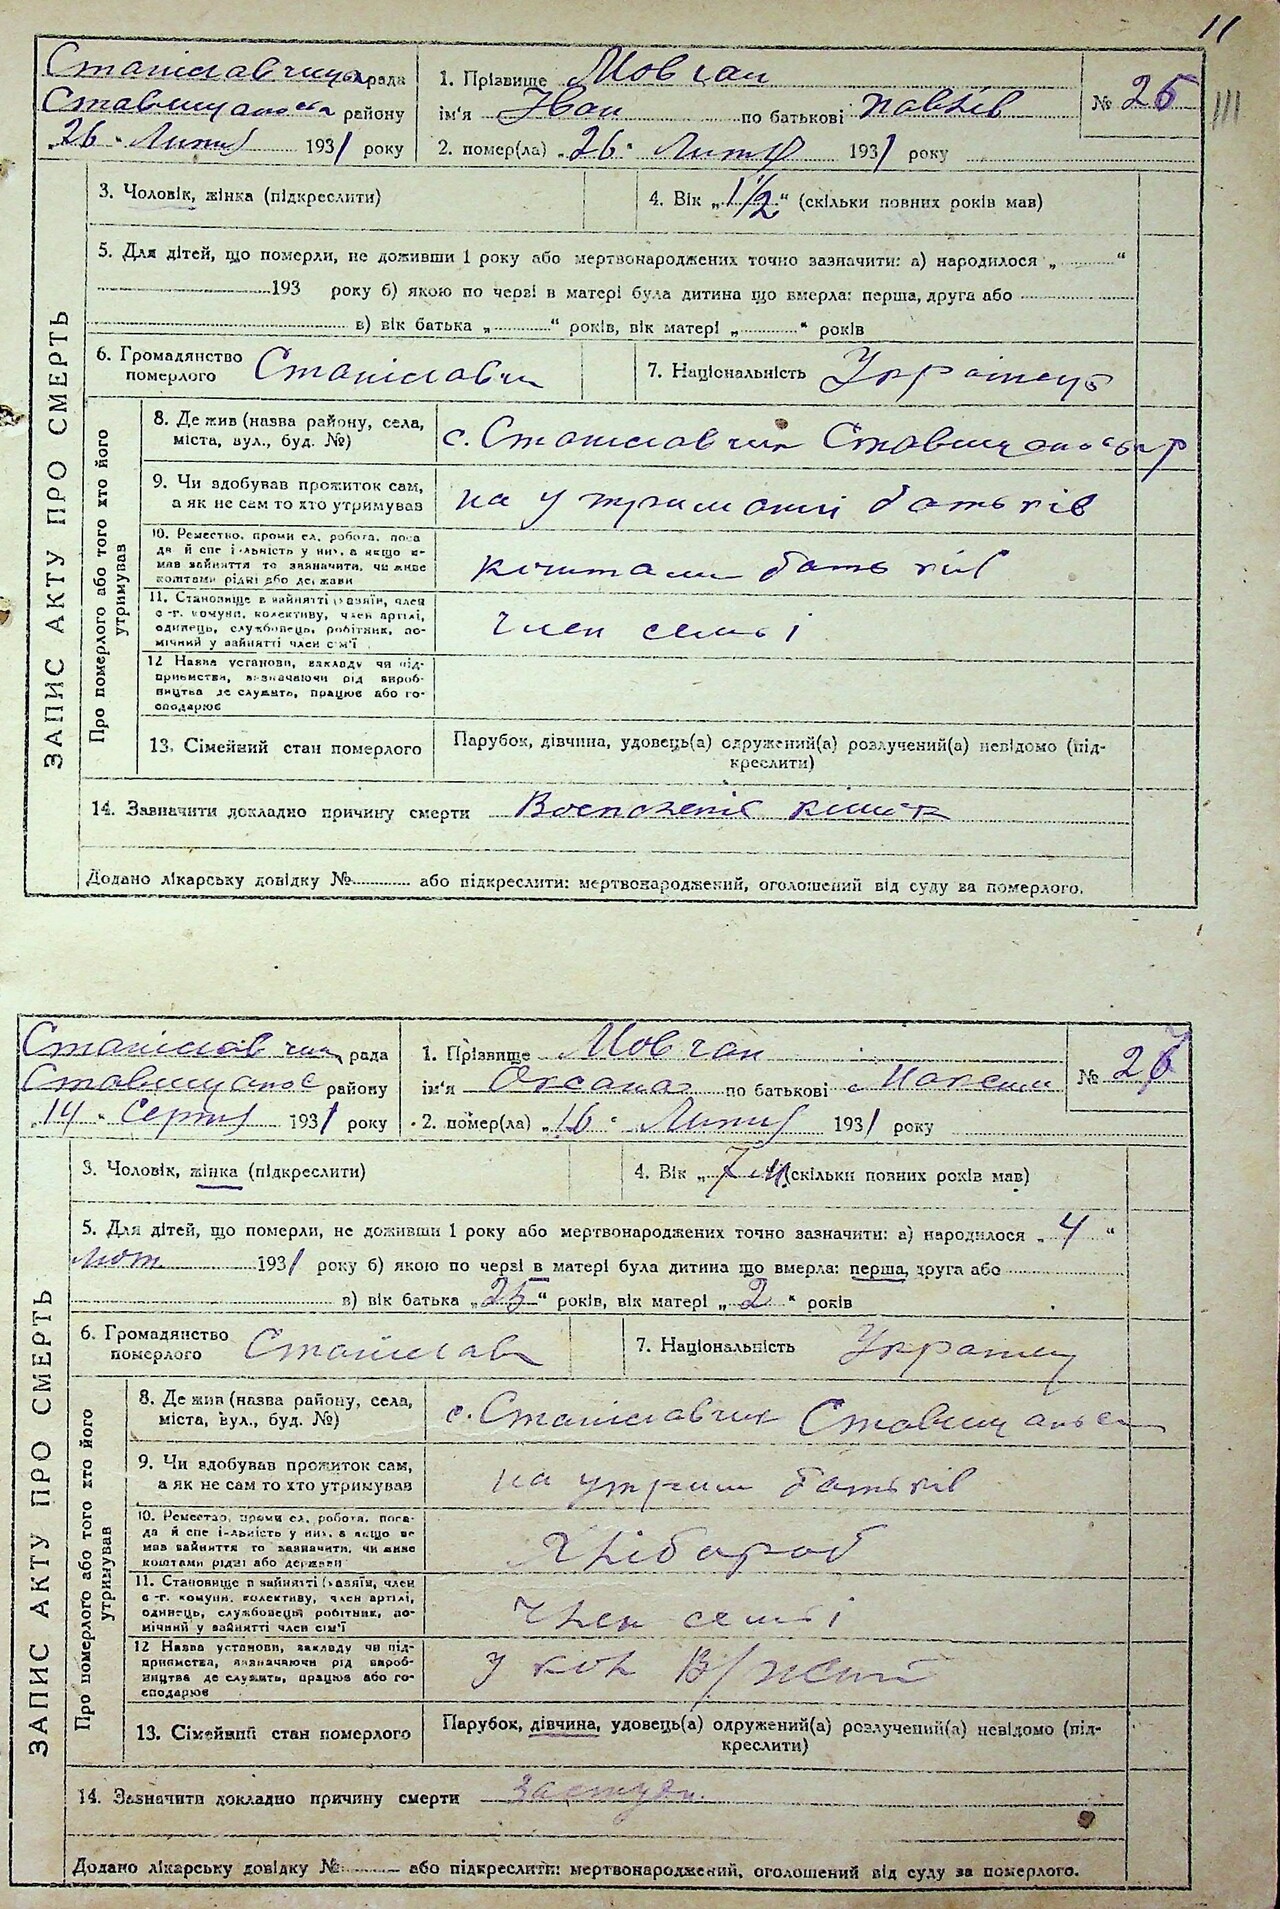 11
Станіславчицька рада
Ставищанська району
"26" Липня 1931 року
1. Прізвище Мовчан
ім'я Іван по батькові Павлів
№ 25
III
2. помер(ла) "26" Липня 1931 року
3. Чоловік, жінка (підкреслити)
4. Вік "1 1/2" (скільки повних років мав)
5. Для дітей, що померли, не доживши 1 року або мертвонароджених точно зазначити: а) народилося „..........“
193 року б) якою по черзі в матері була дитина що вмерла: перша, друга або
в) вік батька „..........“ років, вік матері „..........“ років
6. Громадянство померлого
7. Національність Українець
8. Де жив (назва району, села,
міста, вул., буд. №)
с. Станіславчик
9. Чи здобував прожиток сам,
а як не сам то хто утримував
на утриманні батьків
10. Ремество, проми ел, робота, поса
да й спе і-льність у них, а якщо н-
мав зайняття то зазначити, чи живе
коштами рідні або держави
коштами батьків
11. Становище в зайнятті (хазяїн, член
с-г. комуни, колективу, член артілі,
одинець, службовець, робітник, по-
мічний у зайнятті член сім'ї
член семьі
12 Назва установи, закладу чи під-
приємства, визначаючи рід вироб-
ництва де служить, працює або го-
сподарює
13. Сімейний стан померлого
Парубок, дівчина, удовець(а) одружений(а) розлучений(а) невідомо (під-
креслити)
14. Зазначити докладно причину смерти Восполеніє кишок
Додано лікарську довідку №.......... або підкреслити: мертвонароджений, оголошений від суду за померлого.
ЗАПИС АКТУ ПРО СМЕРТЬ
Про померлого або того хто його
утримував
рада
району
"14" Серпня 1931 року
1. Прізвище Мовчан
ім'я Оксана по батькові Максим
№
2. помер(ла) "16" Липня 1931 року
3. Чоловік, жінка (підкреслити)
4. Вік "7 м. (скільки повних років мав)
5. Для дітей, що померли, не доживши 1 року або мертвонароджених точно зазначити: а) народилося "4"
лют 1931 року б) якою по черзі в матері була дитина що вмерла: перша, друга або
в) вік батька "25" років, вік матері "2" років
6. Громадянство померлого
7. Національність
8. Де жив (назва району, села,
міста, вул., буд. №)
с. Станіславчик
9. Чи здобував прожиток сам,
а як не сам то хто утримував
на утрим батьків
10. Ремество, проми ел, робота, поса-
да й спе і-льність у них, а якщо не
мав зайняття то зазначити, чи живе
коштами рідні або держави
Хлібороб
11. Становище в зайнятті (хазяїн, член
с-г. комуни, колективу, член артілі,
одинець, службовець, робітник, по-
мічний у зайнятті член сім'ї
Член семьі
12 Назва установи, закладу чи під-
приємства, визначаючи рід вироб-
ництва де служить, працює або го-
сподарює
У
13. Сімейний стан померлого
Парубок, дівчина, удовець(а) одружений(а) розлучений(а) невідомо (під-
креслити)
14. Зазначити докладно причину смерти
Додано лікарську довідку №.......... або підкреслити: мертвонароджений, оголошений від суду за померлого.
ЗАПИС АКТУ ПРО СМЕРТЬ
Про померлого або того хто його
утримував